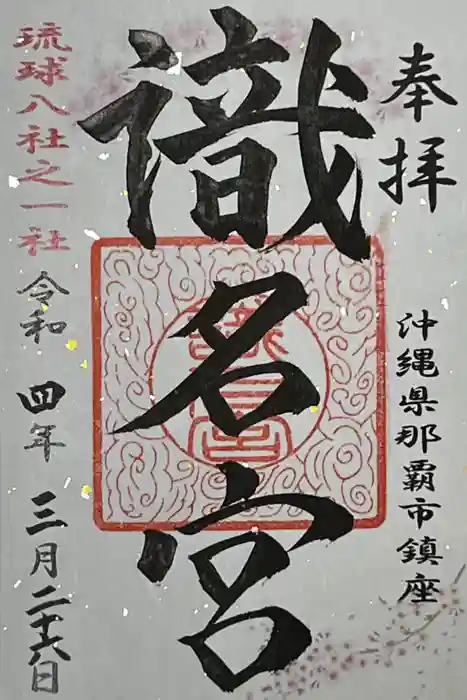 奉拝
沖縄県那覇市鎮座
識名宮
琉球八社之一社
令和四年三月二十六日
識名宮